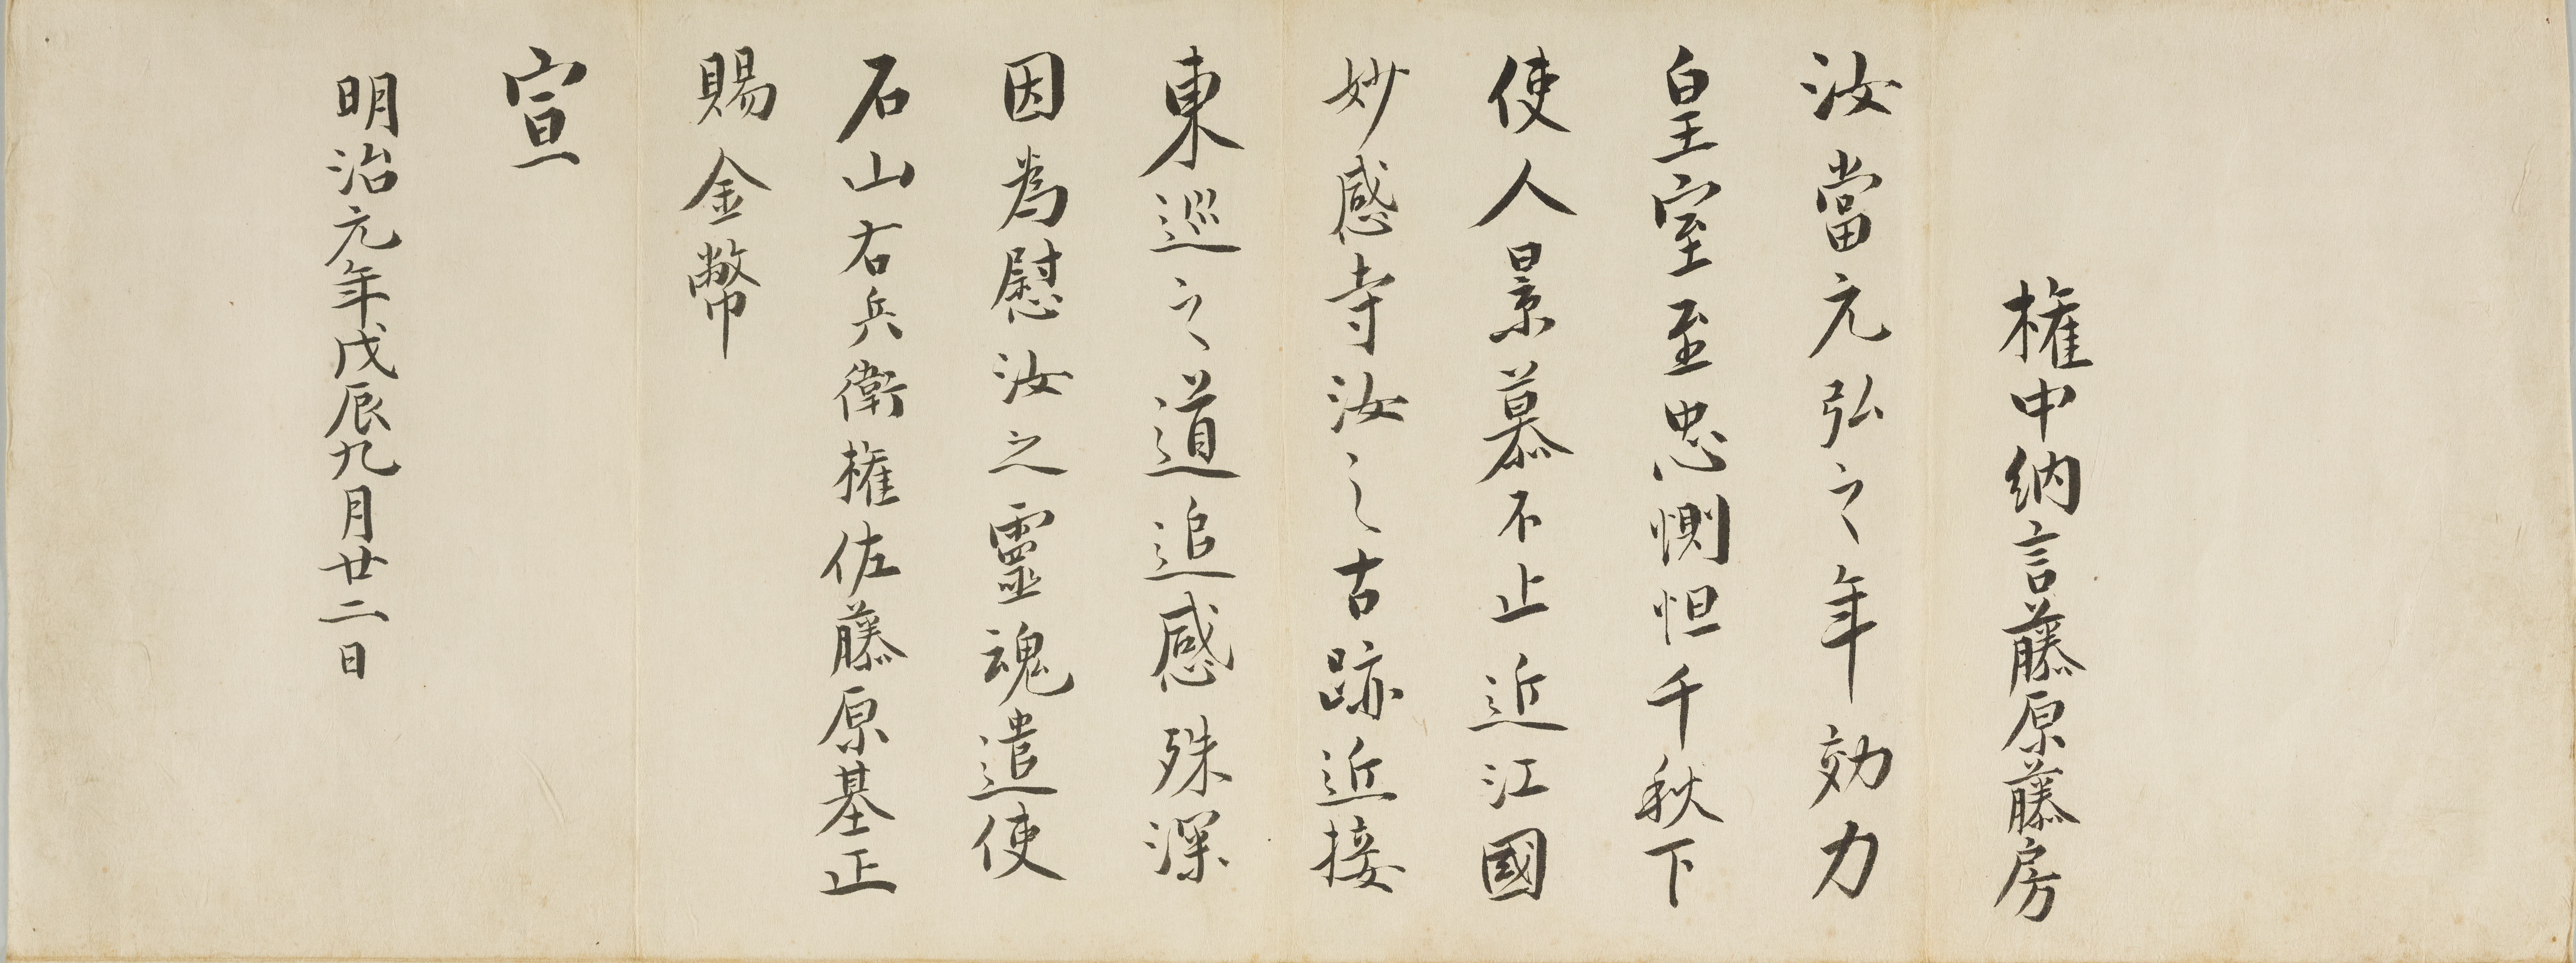 権中納言藤原藤房
汝當元弘之年効力
皇室至忠惻怛千秋下
使人景慕不止近江國
妙感寺汝之古跡近接
東巡之道追感殊深
因為慰汝之靈魂遣使
石山右兵衛権佐藤原基正
賜金幣
宣
明治元年戊辰九月廿二日